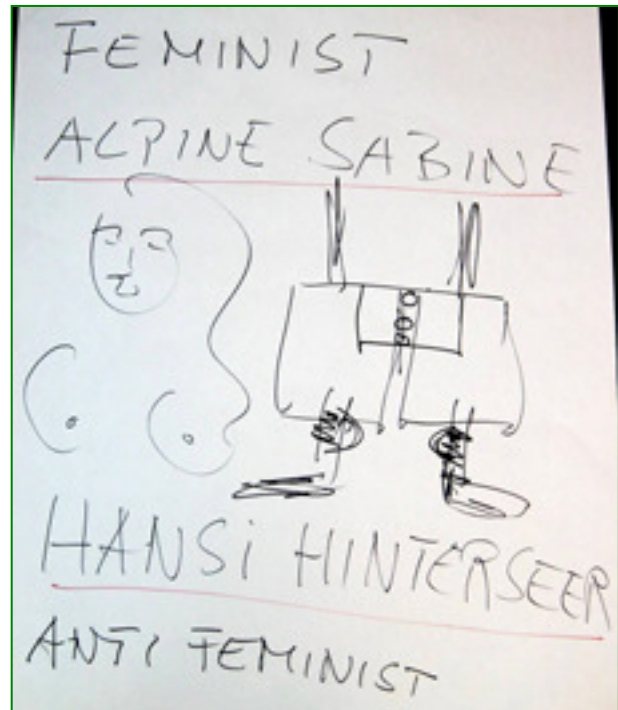 FEMINIST
ALPINE SABINE
HANSi HINTERSEER
ANTI FEMINIST